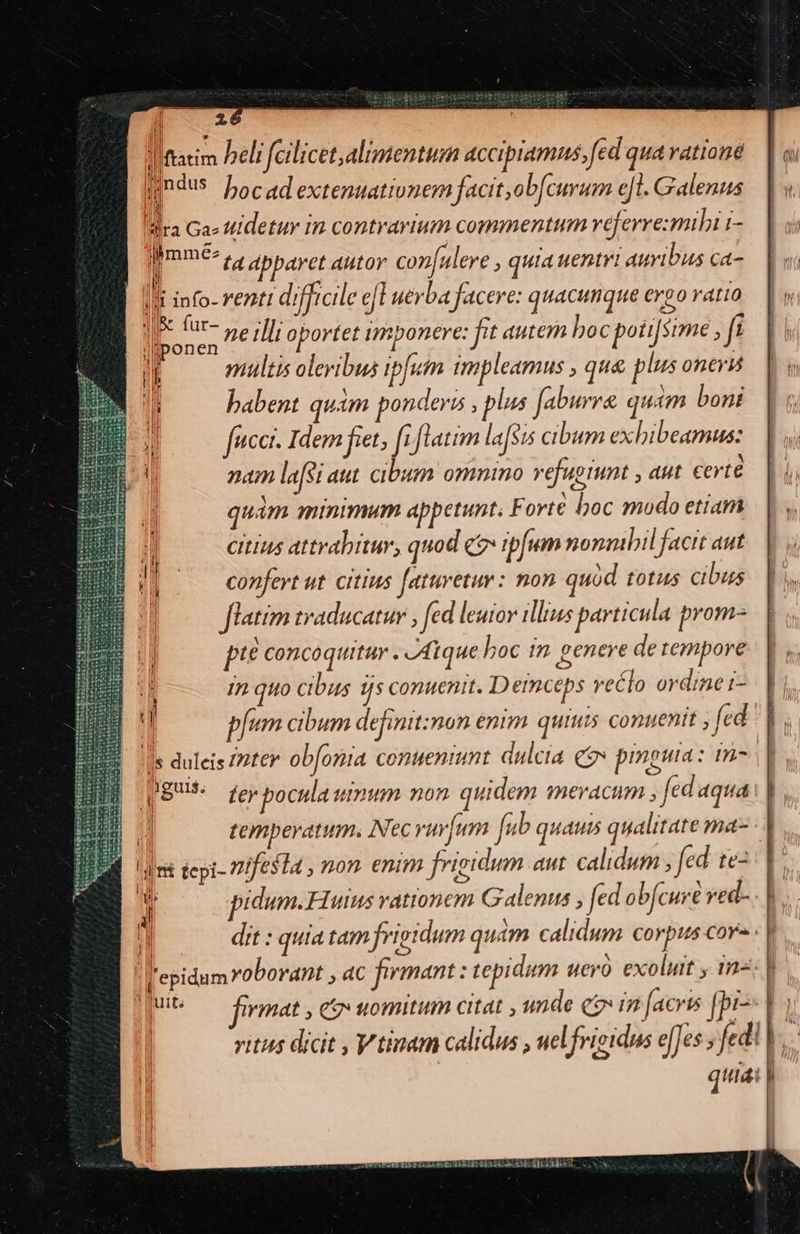 26
ſtatim beli ſcilicet, alimentum accipiamus, ſed qua ratione
ndus hoc ad extenuationem facit, obſcurum eſt. Galenus
ra Ga- uidetur in contrarium commentum referre: mihi i-
mmē- ta apparet autor conſulere, quia uentri auribus ca-
info- renti difficile eſt uerba facere: quacunque ergo ratio
& fur- ne illi oportet imponere: fit autem hoc potiſsime, ſi
ponen
multis oleribus ipſum impleamus, quæ plus oneris
habent quàm ponderis, plus ſaburræ quàm boni
ſucci. Idem fiet, ſi ſtatim laſsis cibum exhibeamus:
nam laſsi aut cibum omnino refugiunt, aut certè
quàm minimum appetunt. Fortè hoc modo etiam
citius attrahitur, quod & ipſum nonnihil facit aut
confert ut citius ſaturetur: non quòd totus cibus
ſtatim traducatur, ſed leuior illius particula prom-
ptè concoquitur. Atque hoc in genere de tempore
in quo cibus ijs conuenit. Deinceps recto ordine i-
pſum cibum definit: non enim quiuis conuenit, ſed
s dulcis inter obſonia conueniunt dulcia & pinguia: in-
guis. ter pocula uinum non quidem meracum, ſed aqua
temperatum. Nec rurſum ſub quauis qualitate ma-
tepi- nifeſta, non enim frigidum aut calidum, ſed te-
pidum. Huius rationem Galenus, ſed obſcurè red-
dit: quia tam frigidum quàm calidum corpus cor-
epidum roborant, ac firmant: tepidum uerò exoluit, in-
uit. firmat, & uomitum citat, unde & in ſacris ſpi-
ritus dicit, Vtinam calidus, uel frigidus eſſes, ſed
quia